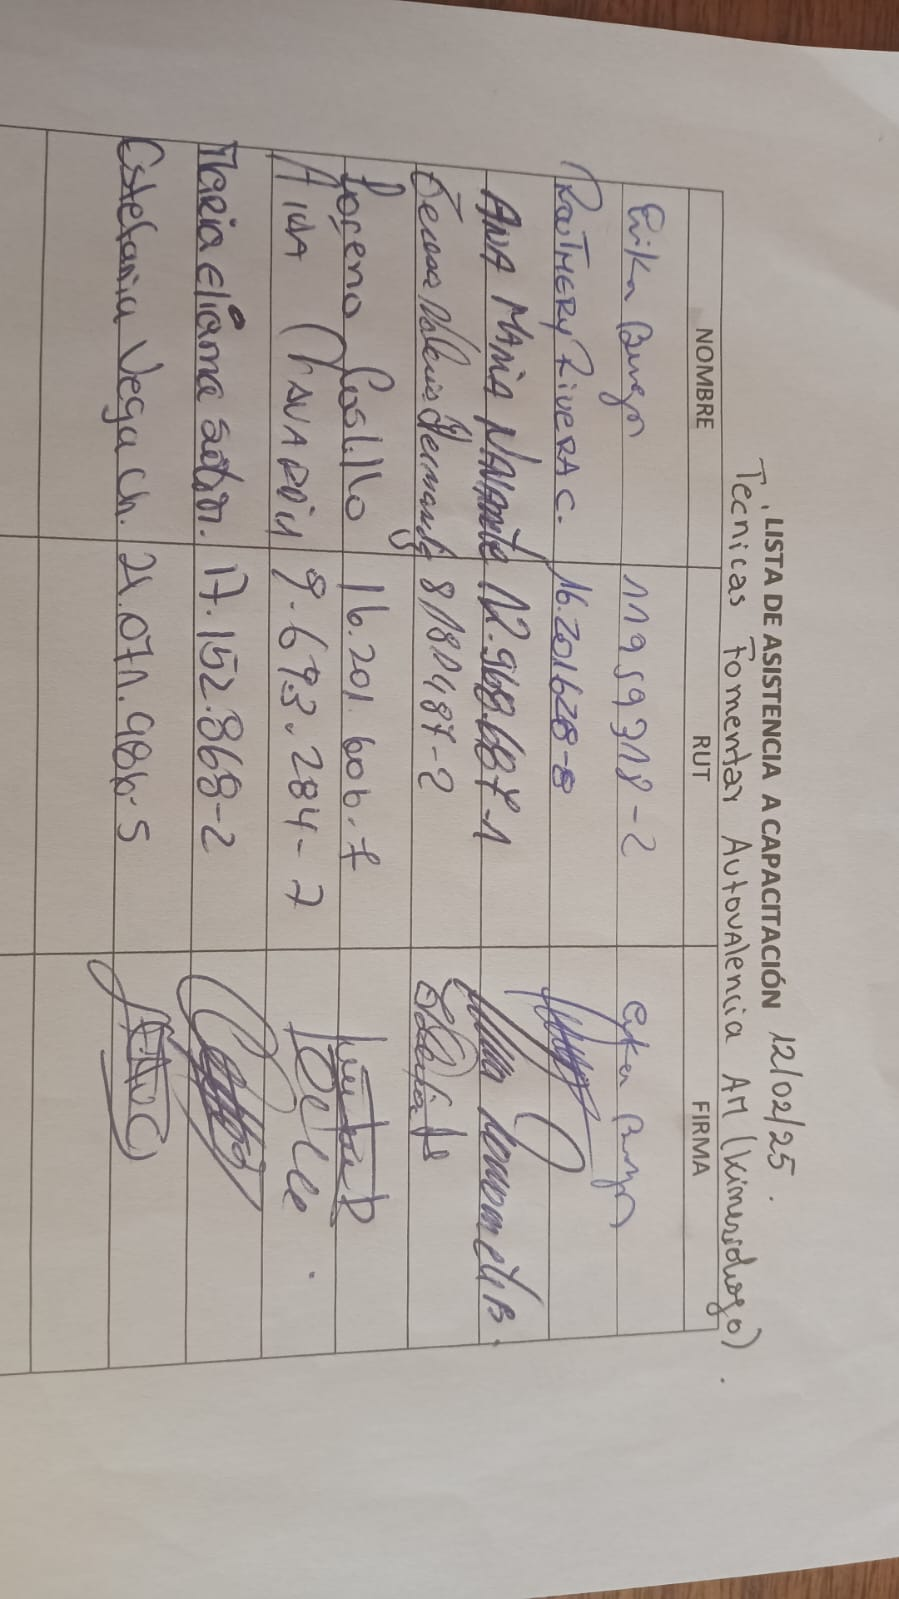 LISTA DE ASISTENCIA A CAPACITACIÓN 12/02/25.
Tecnicas Fomentar Autovalencia AM (kinesiologo).
NOMBRE RUT FIRMA
Erika Burgos 11959318-2 Erika Burgos
RaitHERY RiveRA C. 16.201628-8
ANA MARIA NAVARRETE 12.968.687-1
Valeria Hernandez 8181487-2
Lorena Castillo 16.201.606-7
AIDA 9.693.284-7
Maria eliana 17.152.868-2
Estefania Vega Ch. 21.071.986-5